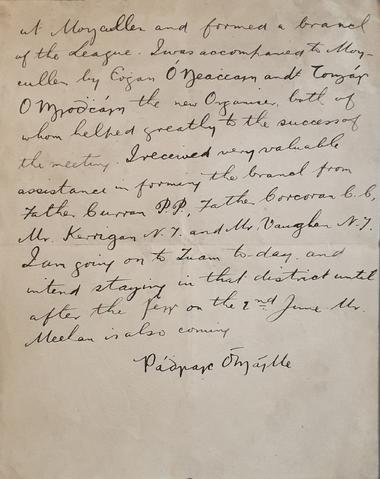 at Moycullen and formed a branch
of the League. I was accompanied to Moy-
cullen by Eoġan Ó Neaċtain and Tomás
the new Organiser, both of
whom helped greatly to the success of
the meeting. I received very valuable
assistance in forming the branch from
Father Curran P.P., Father Corcoran C.C,
Mr. Kerrigan N.T. and Mr. Vaughan N.T.
I am going on to Tuam to-day and
intend staying in that district until
after the Feis on the 2nd June. Mr.
Meehan is also coming
Pádraic Ó Máille